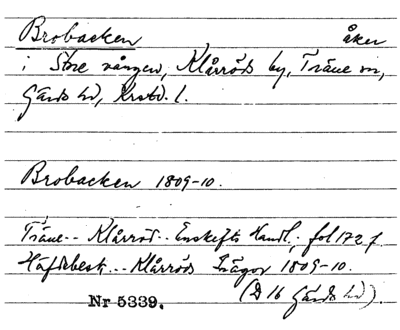 Brobacken åker
i Store vången, Klårröds by, Träne sn,
Gärds hd, Krstd. l.
Brobacken 1809-10.
Träne-- Klårröd-- Enskifts Handl., fol 172 f
Häfdebesk... Klårröds Trägor 1809-10.
Nr 5339. (D 16 Gärds hd).